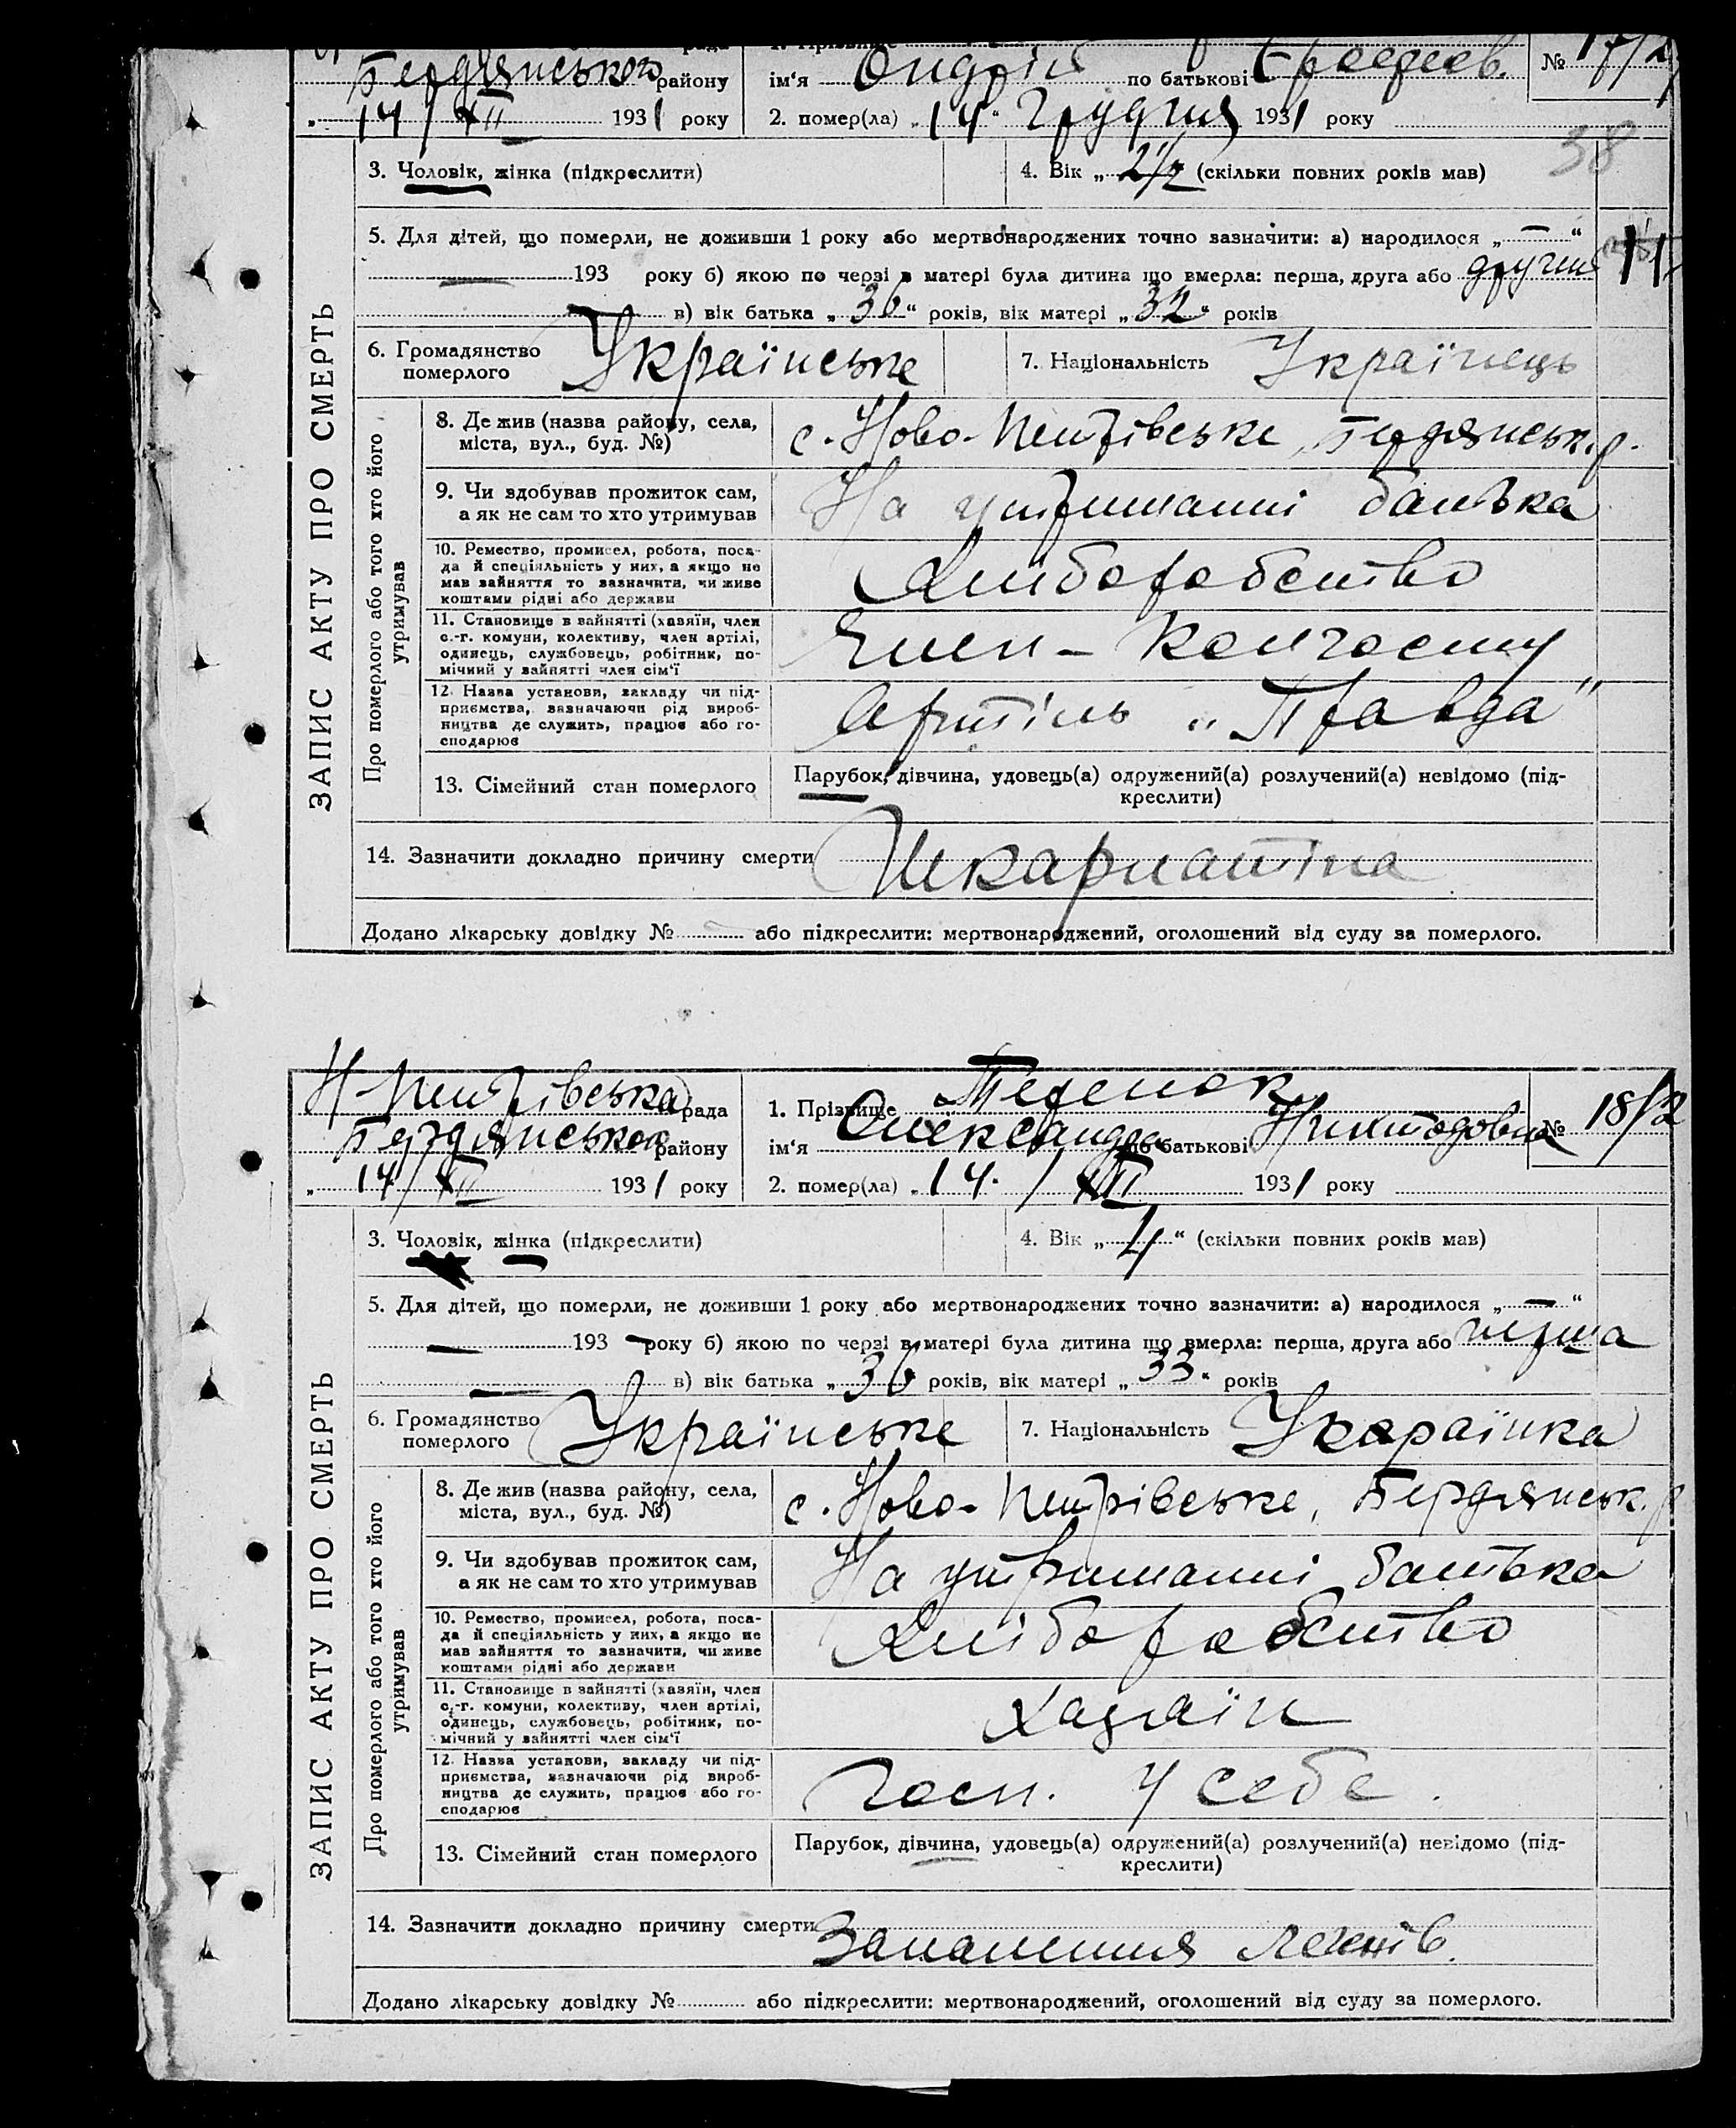 Бердянського району
ім'я Ондрій по батькові Єрофеєв. № 17/2
„ 14/XII 1931 року
2. помер(ла) „14“ Грудня 1931 року
38
3. Чоловік, жінка (підкреслити)
4. Вік „ 2 1/2 (скільки повних років мав)
5. Для дітей, що померли, не доживши 1 року або мертвонароджених точно зазначити: а) народилося „ — “
— 193 року б) якою по черзі в матері була дитина що вмерла: перша, друга або
в) вік батька „ 36 “ років, вік матері „ 32 “ років
6. Громадянство померлого Українське
7. Національність Українець
ЗАПИС АКТУ ПРО СМЕРТЬ
Про померлого або того хто його утримував
8. Де жив (назва району, села,
міста, вул., буд. №)
с. Ново-Петрівське, Бердянськ. р.
9. Чи здобував прожиток сам,
а як не сам то хто утримував
На утриманні батька
10. Ремество, промисел, робота, поса-
да й спеціяльність у них, а якщо не
мав зайняття то зазначити, чи живе
коштами рідні або держави
Хліборобство
11. Становище в зайнятті (хазяїн, член
с.-г. комуни, колективу, член артілі,
одинець, службовець, робітник, по-
мічний у зайнятті член сім'ї
Член - колгоспу
12. Назва установи, закладу чи під-
приємства, зазначаючи рід вироб-
ництва де служить, працює або го-
сподарює
Артіль „Правда“
13. Сімейний стан померлого
Парубок, дівчина, удовець(а) одружений(а) розлучений(а) невідомо (під-
креслити)
14. Зазначити докладно причину смерти Шкарлатіна
Додано лікарську довідку № або підкреслити: мертвонароджений, оголошений від суду за померлого.
Н-Петрівська рада
1. Прізвище Теренок
Бердянського району
ім'я Олександра по батькові № 18/2
„ 14/XII 1931 року
2. помер(ла) „14. / XII 1931 року
3. Чоловік, жінка (підкреслити)
4. Вік „ 4 “ (скільки повних років мав)
5. Для дітей, що померли, не доживши 1 року або мертвонароджених точно зазначити: а) народилося „ — “
— 193 — року б) якою по черзі в матері була дитина що вмерла: перша, друга або перша
— в) вік батька „ 36 “ років, вік матері „ 33 “ років
6. Громадянство померлого Українське
7. Національність Українка
ЗАПИС АКТУ ПРО СМЕРТЬ
Про померлого або того хто його утримував
8. Де жив (назва району, села,
міста, вул., буд. №)
с. Ново-Петрівське, Бердянськ. р
9. Чи здобував прожиток сам,
а як не сам то хто утримував
На утриманні батька
10. Ремество, промисел, робота, поса-
да й спеціяльність у них, а якщо не
мав зайняття то зазначити, чи живе
коштами рідні або держави
Хліборобство
11. Становище в зайнятті (хазяїн, член
с.-г. комуни, колективу, член артілі,
одинець, службовець, робітник, по-
мічний у зайнятті член сім'ї
Хазяїн
12. Назва установи, закладу чи під-
приємства, зазначаючи рід вироб-
ництва де служить, працює або го-
сподарює
Госп. у себе.
13. Сімейний стан померлого
Парубок, дівчина, удовець(а) одружений(а) розлучений(а) невідомо (під-
креслити)
14. Зазначити докладно причину смерти Запалення легенів.
Додано лікарську довідку № або підкреслити: мертвонароджений, оголошений від суду за померлого.